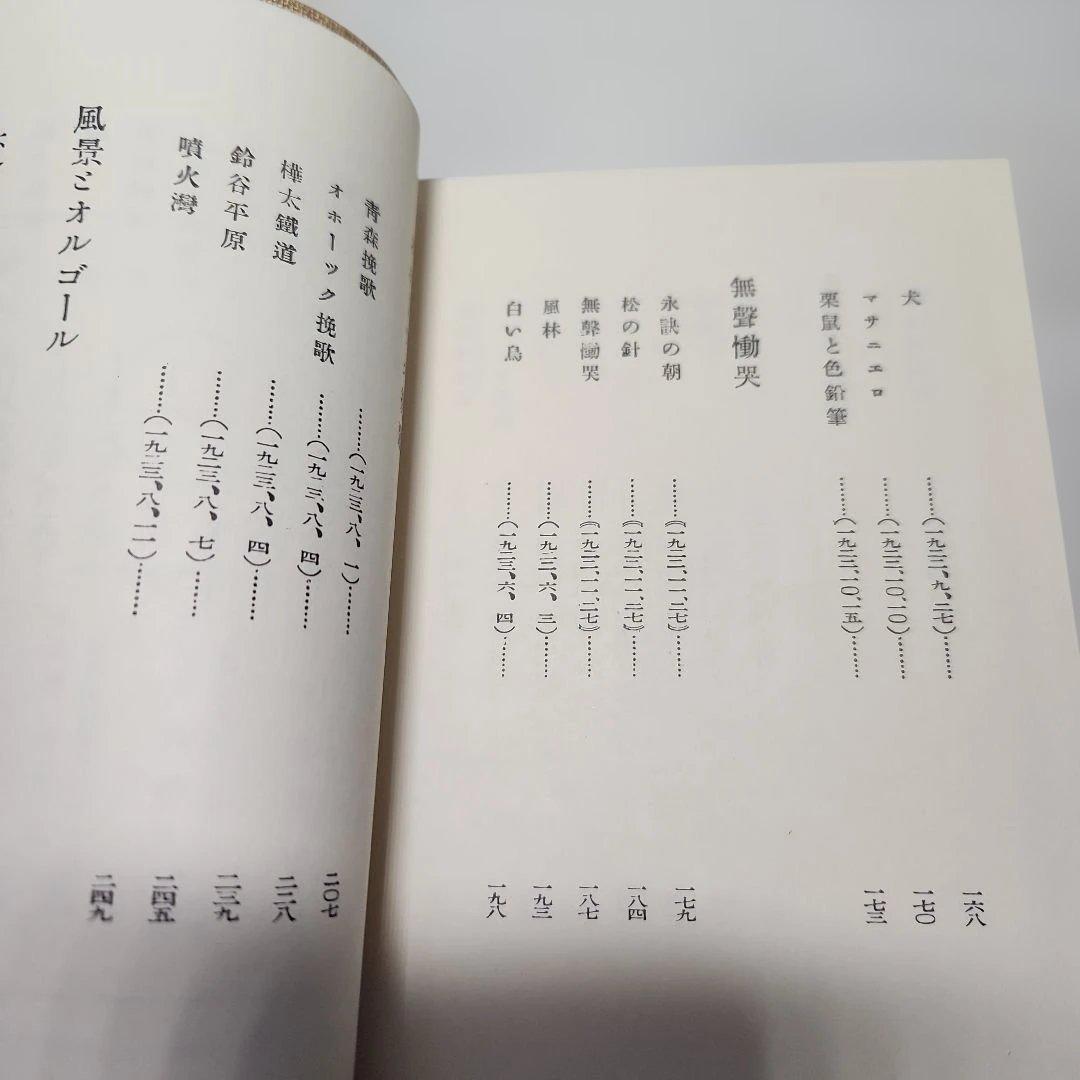 犬………(一九二二、九、二七)………一六八
マサニエロ………(一九二二、一〇、一〇)………一七〇
栗鼠と色鉛筆………(一九二二、一〇、一五)………一七三
無聲慟哭
永訣の朝………((一九二二、一一、二七))………一七九
松の針………((一九二二、一一、二七))………一八四
無聲慟哭………((一九二二、一一、二七))………一八七
風林………(一九二三、六、三)………一九三
白い鳥………(一九二三、六、四)………一九八
靑森挽歌………(一九二三、八、一)………二〇七
オホーツク挽歌………(一九二三、八、四)………二二八
樺太鐵道………(一九二三、八、四)………二三九
鈴谷平原………(一九二三、八、七)………二四五
噴火灣………(一九二三、八、一一)………二四九
風景とオルゴール